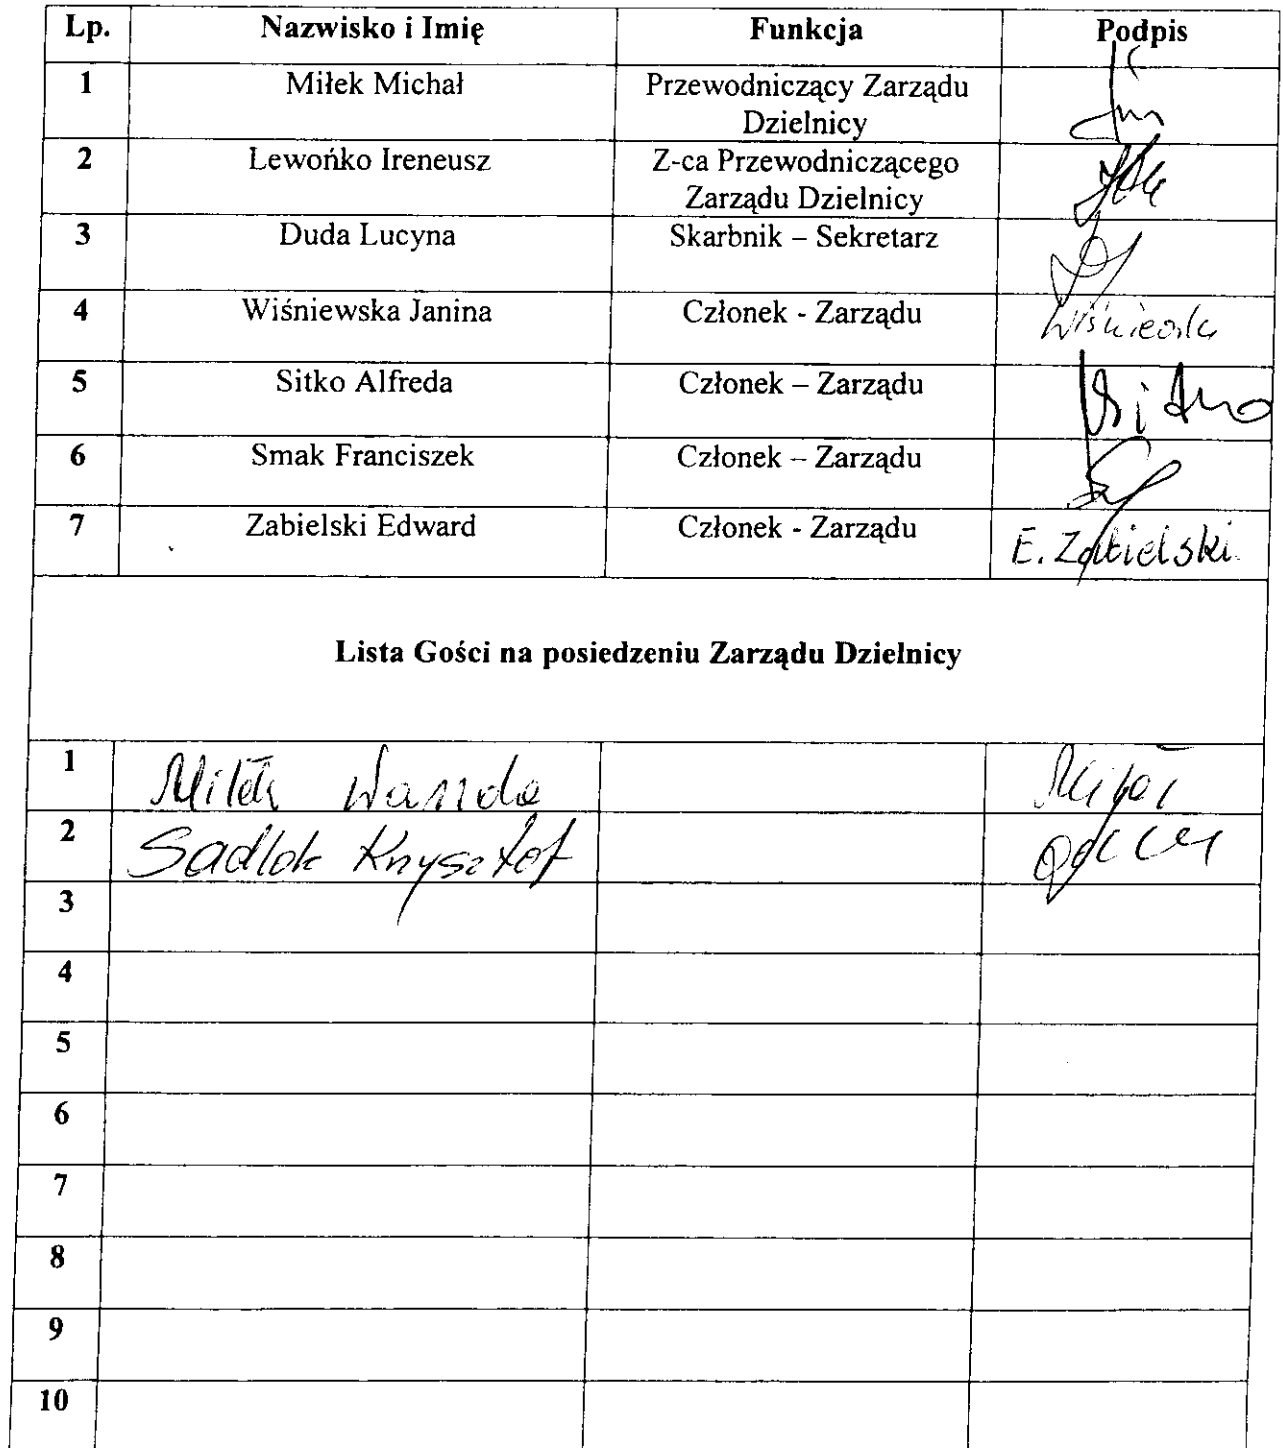 Lp. Nazwisko i Imię Funkcja Podpis
1 Miłek Michał Przewodniczący Zarządu
Dzielnicy
2 Lewońko Ireneusz Z-ca Przewodniczącego
Zarządu Dzielnicy
3 Duda Lucyna Skarbnik – Sekretarz
4 Wiśniewska Janina Członek - Zarządu Wiśniewska
5 Sitko Alfreda Członek – Zarządu Sitko
6 Smak Franciszek Członek – Zarządu
7 Zabielski Edward Członek - Zarządu E. Zabielski
Lista Gości na posiedzeniu Zarządu Dzielnicy
1 Miłek Wanda
2 Sadlok Krzysztof
3
4
5
6
7
8
9
10